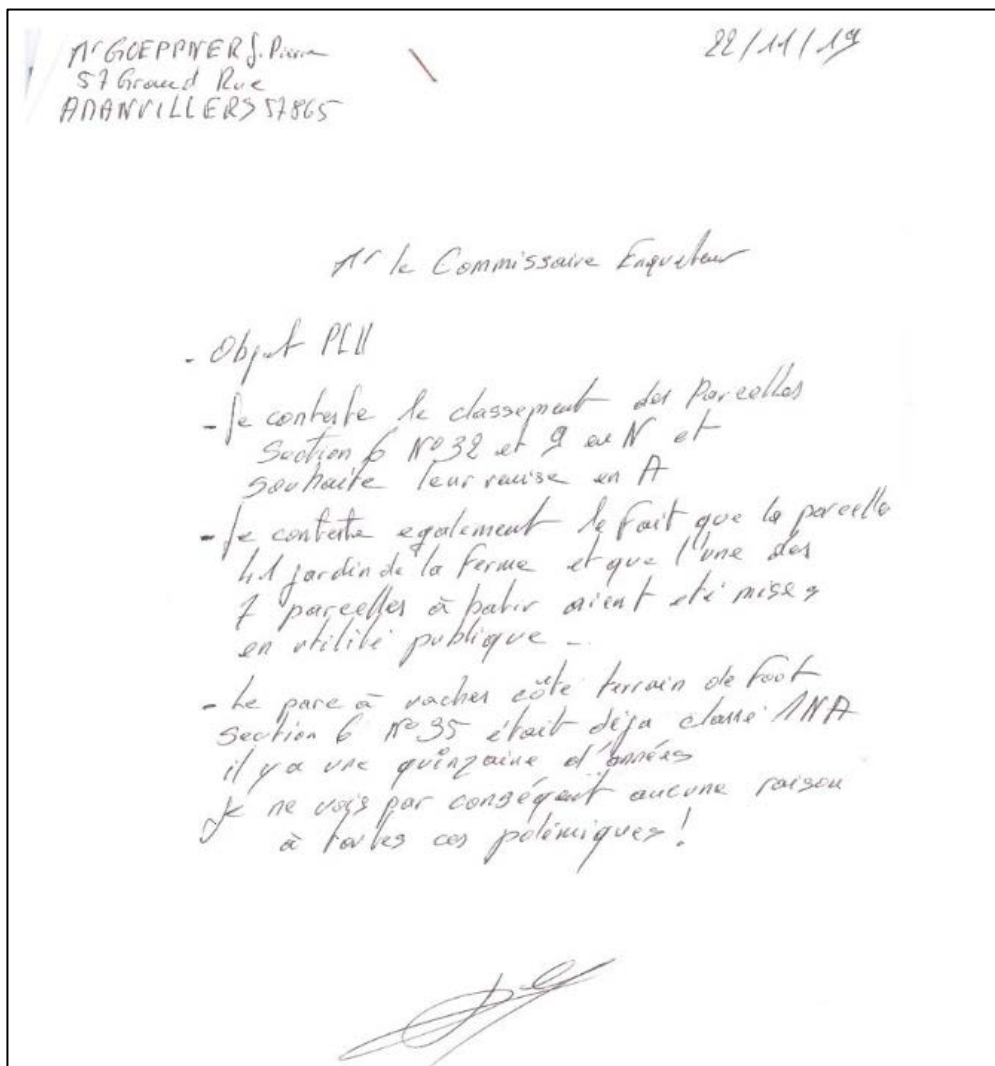 Mr GOEPPNER J. Pierre
22/11/19
57 Grand Rue
AMANVILLERS 57865
Mr le Commissaire Enqueteur
- Objet PLU
- Je conteste le classement des Parcelles
Section 6 N° 32 et 9 en N et
souhaite leur remise en A
- Je conteste egalement le fait que la parcelle
41 jardin de la ferme et que l'une des
7 parcelles à batir aient eté mises
en utilité publique -
- Le parc à vaches côté terrain de foot
section 6 N° 35 était déja classé 1NA
il y a une quinzaine d'années
Je ne vois par conséqent aucune raison
à toutes ces polémiques !